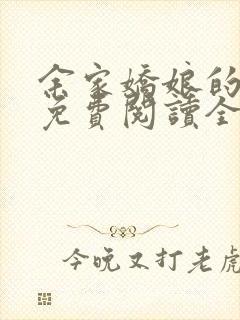 余家嬌娘的
免費閱讀全
今晚又打老虎